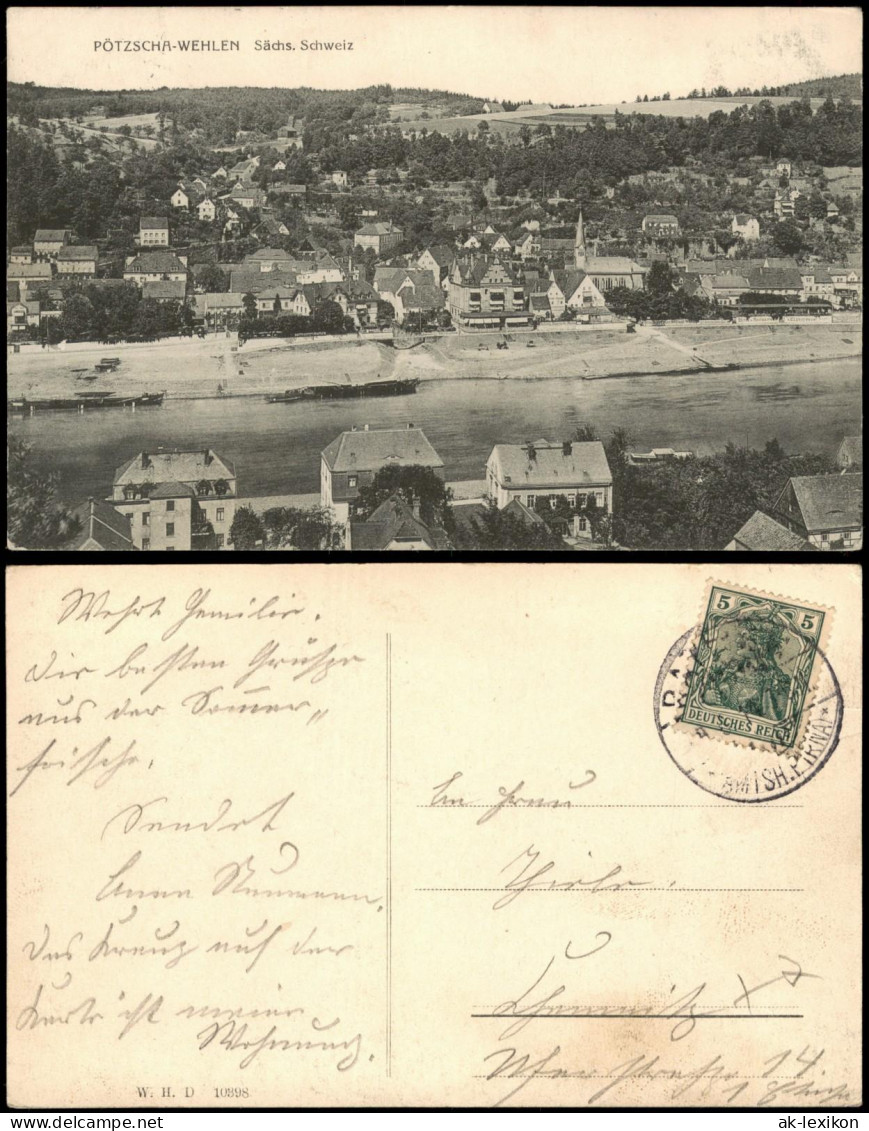 PÖTZSCHA-WEHLEN Sächs. Schweiz
Wehrt Familie.
Die besten Grüsse
aus der Sommer„
frische.
Sendet
Anna Neumann,
Das Kreuz auf der
Karte ist meine
Wohnung.
W. H. D 10398
5 5
DEUTSCHES REICH
AMTSH. PIRNA
An Frau
Thiele.
Chemnitz
Uferstrasse 14
ak-lexikon